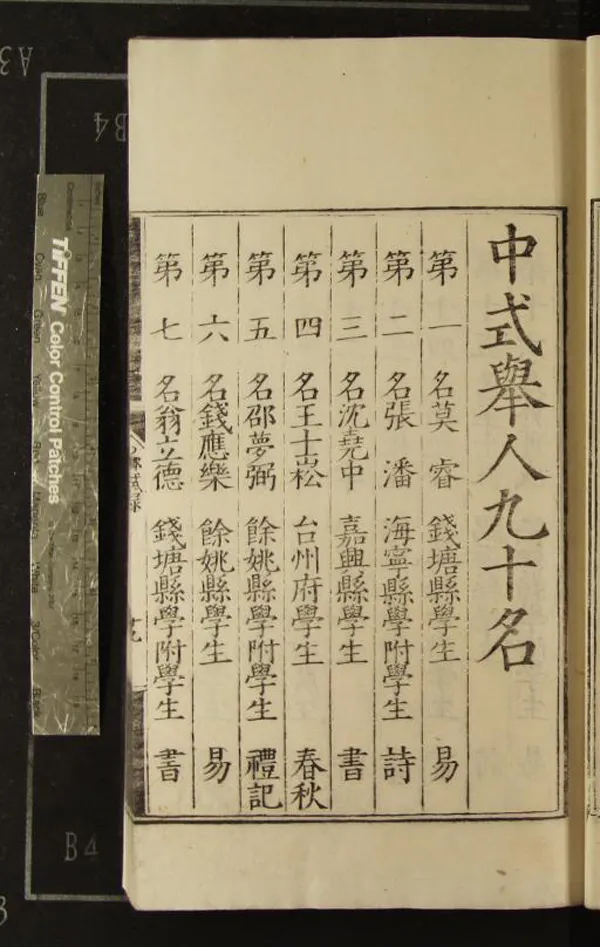 中式舉人九十名
第一名莫睿 錢塘縣學生 易
第二名張潘 海寧縣學附學生 詩
第三名沈堯中 嘉興縣學生 書
第四名王士崧 台州府學生 春秋
第五名邵夢弼 餘姚縣學附學生 禮記
第六名錢應樂 餘姚縣學生 易
第七名翁立德 錢塘縣學附學生 書
試錄
十九
TIFFEN Color Control Patches
A3
B4
B4